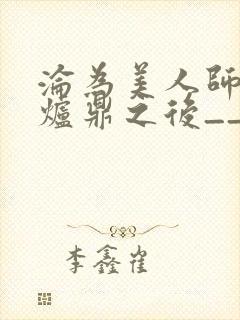 淪為美人師
爐鼎之後__
李鑫雀